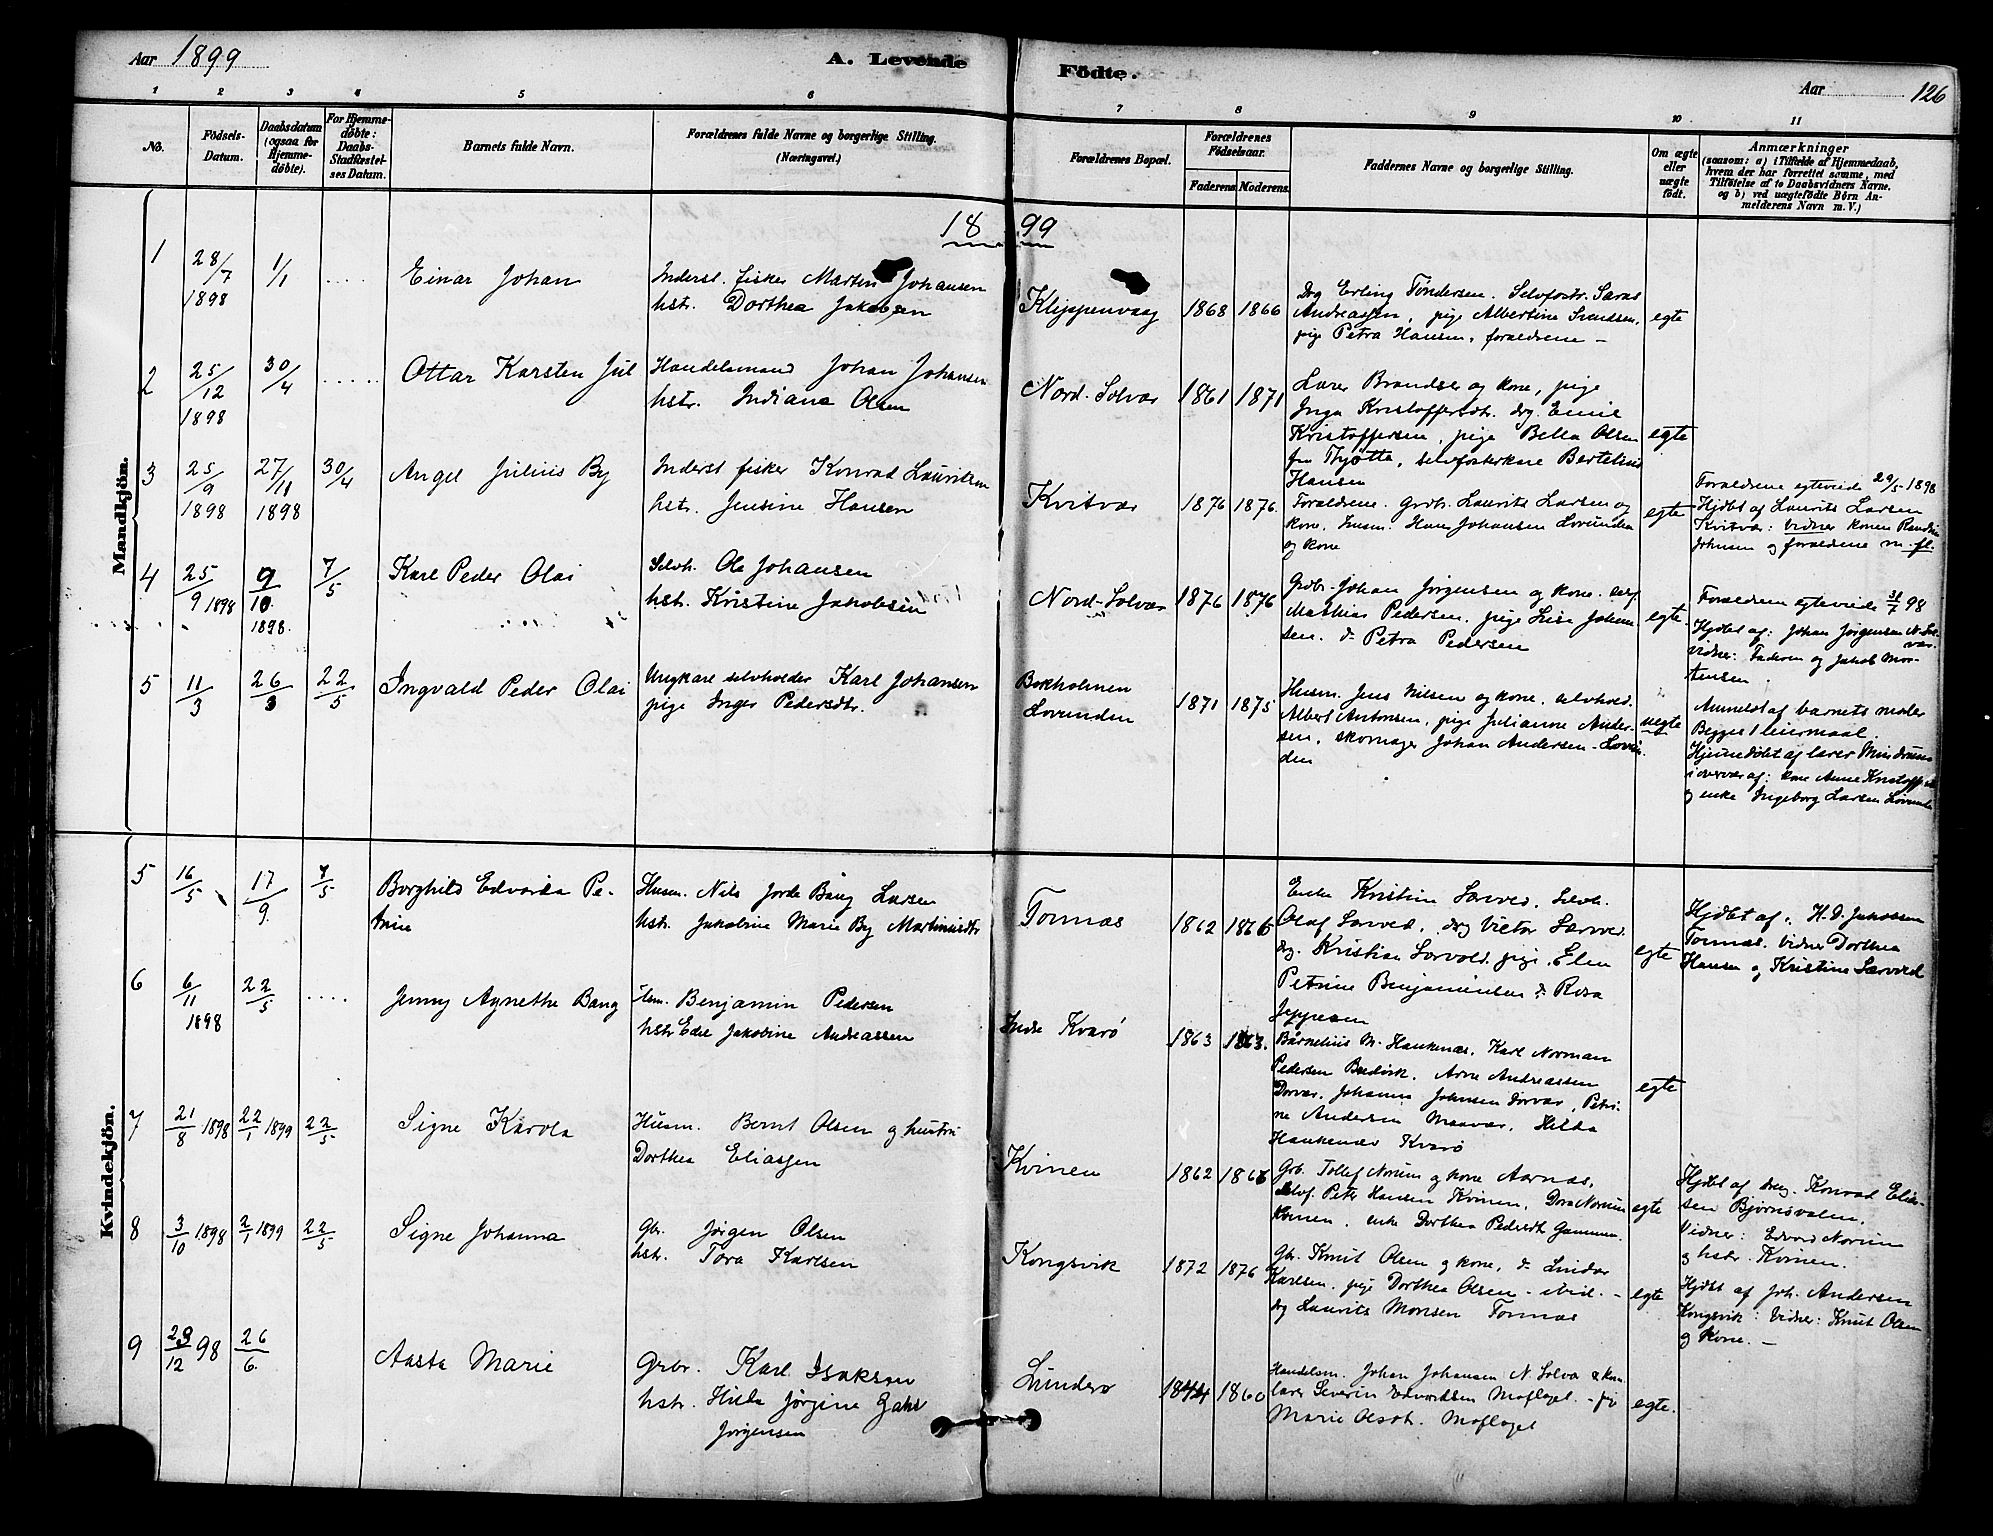 Aar 1899
A. Levende Födte.
Aar 126
1 2 3 4 5 6 7 8 9 10 11
No.
Födsels-Datum.
Daabsdatum (ogsaa for Hjemmedøbte).
For Hjemmedøbte: Daabs-Stadfæstelses Datum.
Barnets fulde Navn.
Forældrenes fulde Navne og borgerlige Stilling. (Næringsvei.)
Forældrenes Bopæl.
Forældrenes Födselsaar.
Faderens Moderens
Faddernes Navne og borgerlige Stilling.
Om ægte eller uægte født.
Anmærkninger
(saasom: a) i Tilfælde af Hjemmedaab, hvem der har forrettet samme, med Tilføielse af to Daabsvidners Navne. og b) ved uægtefødte Børn Anmelderens Navn m.V.)
1899
Mandkjön.
1 28/7 1898 1/1 ....
Einar Johan
Inderst. fisker Martin Johansen
hstr. Dorthea Jakobsen
Klippenvaag 1868 1866
Drg Erling Tøndersen. Selvfostr.
Andreassen, pige Albertine
pige Petra Hansen, foraeldrene –
egte
2 25/12 1898 30/4 .....
Ottar Karsten Jul
Handelsmand Johan Johansen
hstr. Indiana Olsen
Nord-Solvær 1861 1871
Lærer Brandser og kone, pige
Inga Kristoffersdtr. drg. Emil
Kristoffersen, pige Bella Olsen
fra Thjøtta,
Hansen
egte
3 25/9 1898 27/11 1898 30/4
Angel Julius By
Inderst fisker Konrad Lauritsen
hstr. Jensine Hansen
Kvitvær 1876 1876
Foraeldrene. Grdbr. Laurits Larsen og
kone, husm. Hans Johansen Lovunden
og kone
egte
Foraeldrene egteviede 29/5 1898
Hjdbt af Laurits Larsen
Kvitvær: vidner konen
Johnsen og foraeldrene m. fl.
4 25/9 1898 9/10 1898. 7/5
Karl Peder Olai
Selvh. Ole Johansen
hstr. Kristine Jakobsen
Nord-Solvær 1876 1876
Grdb. Johan Jørgensen og kone.
Mathias Pedersen, pige Lise Johansen. d° Petra Pedersen
egte
Foraeldrene egteviede 31/7 98
Hjdbt af: Johan Jørgensen N. Solvær.
vidner: Faderen og Jakob Mortensen.
5 11/3 26/3 22/5
Ingvald Peder Olai
Ungkarl selvholder Karl Johansen
pige Inger Pedersdtr.
Bokholmen
Lovunden 1871 1875
Husm. Jens Nilsen og kone, selvhold.
Albert Antonsen, pige Julianne Andersen, skomager Johan Andersen – Lovunden
uegte
Anmeldt af barnets moder
Begges 1 leiermaal.
Hjemmedøbt af lærer
i overvær af: kone Anne
g enke Ingeborg Larsen Lovunden
Kvindekjön.
5 16/5 17/9 7/5
Borghild Edvarda Petrine
Husm. Nils Jorde Bang Larsen
hstr. Jakobine Marie By Martinusdtr
Tonnæs 1862 1866
Enke Kristine Sørved, Selvh.
Olaf Sørved, drg Victor Sørved.
drg. Kristian pige Elen
Petrine Benjaminsen d° Rosa
Jeppesen
egte
Hjdbt af: H. D. Jakobsen
Tonnæs. Vidner Dorthea
Hansen og Kristine Sørved
6 6/11 1898 22/5 ....
Jenny Agnethe Bang
Benjamin Pedersen
hstr Edel Jakobine Andreassen
Indre Kvarø 1863 1863.
M. Haukenæs, Karl Norman
Pedersen Arne Andreassen
Dorvær, Johanna Johnsen Dorvær, Petrine Andersen Maavær, Hilda
Haukenæs Kvarø
egte
7 21/8 1898 22/1 1899 22/5
Signe Karola
Husm. Bernt Olsen og hustru
Dorthea Eliassen
Kvinen 1862 1866
Grb. Tollef Norum og kone Aarnæs,
Selvf. Peter Hansen Kvinen, Dora Norum
Kvinen, enke Dorthea Pedersdt
egte
Hjdbt af drg. Konrad Eliassen Bjørnsvolen.
Vidner: Edvard Norum
og hstr. Kvinen.
8 3/10 1898 2/1 1899 22/5
Signe Johanna
Gbr. Jørgen Olsen
hstr. Tora Karlsen
Kongsvik 1872 1876
Gbr. Knut Olsen og kone, d° Lindor
Karlsen, pige Dorthea Olsen – ibid. –
drg Laurits Monsen Tonnæs
egte
Hjdbt af Joh. Andersen
Kongsvik: Vidner: Knut Olsen
og Kone. –
9 23/12 98 26/6.
Aasta Marie
Grbr. Karl Isaksen
hstr. Hilda Jørgine
Jørgensen
Lunderø 1844 1860
Handelsm. Johan Johansen N. Solvær &
lærer Severin Edvardsen Moflaget –
Marie Olsdt. Moflaget
egte.